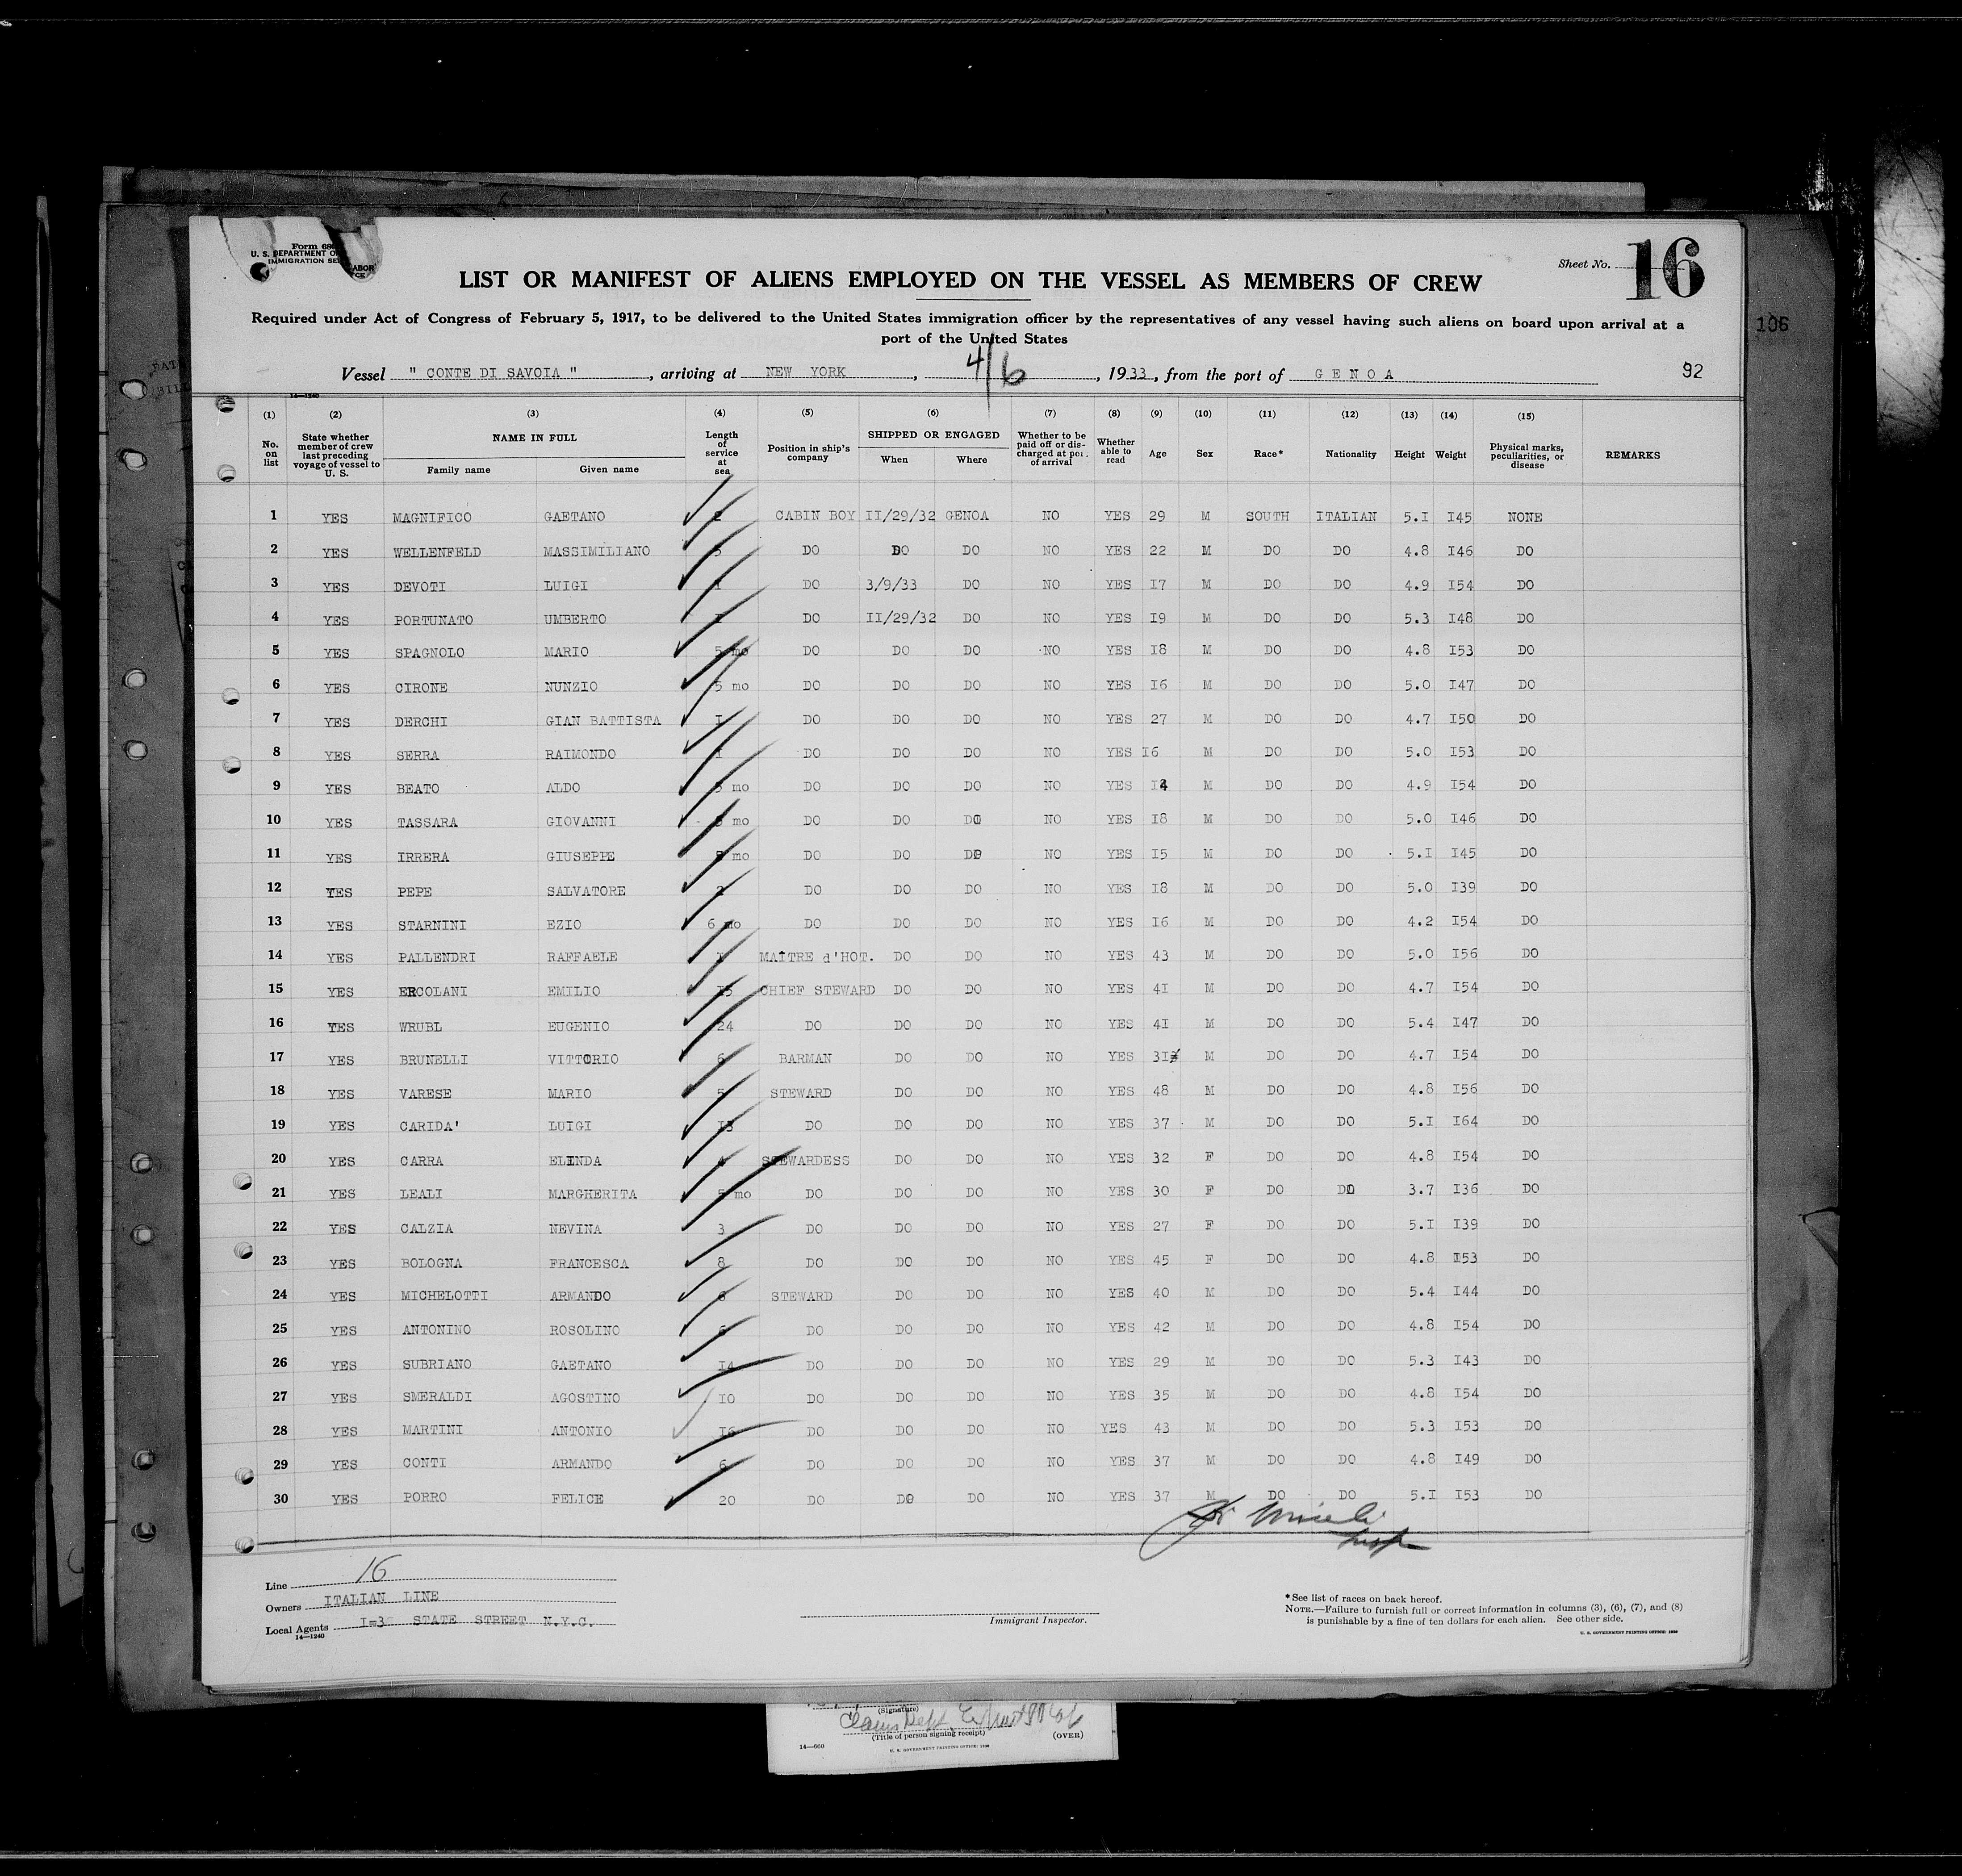 Form 68
U. S. DEPARTMENT O ABOR
IMMIGRATION SE CE
LIST OR MANIFEST OF ALIENS EMPLOYED ON THE VESSEL AS MEMBERS OF CREW
Sheet No. 16
Required under Act of Congress of February 5, 1917, to be delivered to the United States immigration officer by the representatives of any vessel having such aliens on board upon arrival at a
port of the United States
106
Vessel " CONTE DI SAVOIA " , arriving at NEW YORK , 4/6 , 1933 , from the port of G E N O A 92
14—1240
(1) (2) (3) (4) (5) (6) (7) (8) (9) (10) (11) (12) (13) (14) (15)
No. on list State whether member of crew last preceding voyage of vessel to U. S. NAME IN FULL Family name Given name Length of service at sea Position in ship's company SHIPPED OR ENGAGED When Where Whether to be paid off or discharged at port of arrival Whether able to read Age Sex Race* Nationality Height Weight Physical marks, peculiarities, or disease REMARKS
1 YES MAGNIFICO GAETANO 2 CABIN BOY II/29/32 GENOA NO YES 29 M SOUTH ITALIAN 5.I I45 NONE
2 YES WELLENFELD MASSIMILIANO 5 DO DO DO NO YES 22 M DO DO 4.8 I46 DO
3 YES DEVOTI LUIGI I DO 3/9/33 DO NO YES I7 M DO DO 4.9 I54 DO
4 YES PORTUNATO UMBERTO I DO II/29/32 DO NO YES I9 M DO DO 5.3 I48 DO
5 YES SPAGNOLO MARIO 5 mo DO DO DO NO YES I8 M DO DO 4.8 I53 DO
6 YES CIRONE NUNZIO 5 mo DO DO DO NO YES I6 M DO DO 5.0 I47 DO
7 YES DERCHI GIAN BATTISTA I DO DO DO NO YES 27 M DO DO 4.7 I50 DO
8 YES SERRA RAIMONDO I DO DO DO NO YES I6 M DO DO 5.0 I53 DO
9 YES BEATO ALDO 5 mo DO DO DO NO YES I4 M DO DO 4.9 I54 DO
10 YES TASSARA GIOVANNI mo DO DO DO NO YES I8 M DO DO 5.0 I46 DO
11 YES IRRERA GIUSEPPE mo DO DO DO NO YES I5 M DO DO 5.I I45 DO
12 YES PEPE SALVATORE 2 DO DO DO NO YES I8 M DO DO 5.0 I39 DO
13 YES STARNINI EZIO 6 mo DO DO DO NO YES I6 M DO DO 4.2 I54 DO
14 YES PALLENDRI RAFFAELE I MAÎTRE d'HOT. DO DO NO YES 43 M DO DO 5.0 I56 DO
15 YES ERCOLANI EMILIO I5 CHIEF STEWARD DO DO NO YES 4I M DO DO 4.7 I54 DO
16 YES WRUBL EUGENIO 24 DO DO DO NO YES 4I M DO DO 5.4 I47 DO
17 YES BRUNELLI VITTORIO 6 BARMAN DO DO NO YES 3I M DO DO 4.7 I54 DO
18 YES VARESE MARIO 5 STEWARD DO DO NO YES 48 M DO DO 4.8 I56 DO
19 YES CARIDA' LUIGI I3 DO DO DO NO YES 37 M DO DO 5.I I64 DO
20 YES CARRA ELINDA 4 STEWARDESS DO DO NO YES 32 F DO DO 4.8 I54 DO
21 YES LEALI MARGHERITA 5 mo DO DO DO NO YES 30 F DO DO 3.7 I36 DO
22 YES CALZIA NEVINA 3 DO DO DO NO YES 27 F DO DO 5.I I39 DO
23 YES BOLOGNA FRANCESCA 8 DO DO DO NO YES 45 F DO DO 4.8 I53 DO
24 YES MICHELOTTI ARMANDO 6 STEWARD DO DO NO YES 40 M DO DO 5.4 I44 DO
25 YES ANTONINO ROSOLINO 6 DO DO DO NO YES 42 M DO DO 4.8 I54 DO
26 YES SUBRIANO GAETANO I4 DO DO DO NO YES 29 M DO DO 5.3 I43 DO
27 YES SMERALDI AGOSTINO IO DO DO DO NO YES 35 M DO DO 4.8 I54 DO
28 YES MARTINI ANTONIO I6 DO DO DO NO YES 43 M DO DO 5.3 I53 DO
29 YES CONTI ARMANDO 6 DO DO DO NO YES 37 M DO DO 4.8 I49 DO
30 YES PORRO FELICE 20 DO DO DO NO YES 37 M DO DO 5.I I53 DO
Insp
Line 16
Owners ITALIAN LINE
Local Agents I=3 STATE STREET N.Y.C.
14—1240
Immigrant Inspector.
*See list of races on back hereof.
NOTE.—Failure to furnish full or correct information in columns (3), (6), (7), and (8)
is punishable by a fine of ten dollars for each alien. See other side.
U. S. GOVERNMENT PRINTING OFFICE: 1930
(Signature)
Claims Dept.
(Title of person signing receipt)
(OVER)
14—660
U. S. GOVERNMENT PRINTING OFFICE: 1930